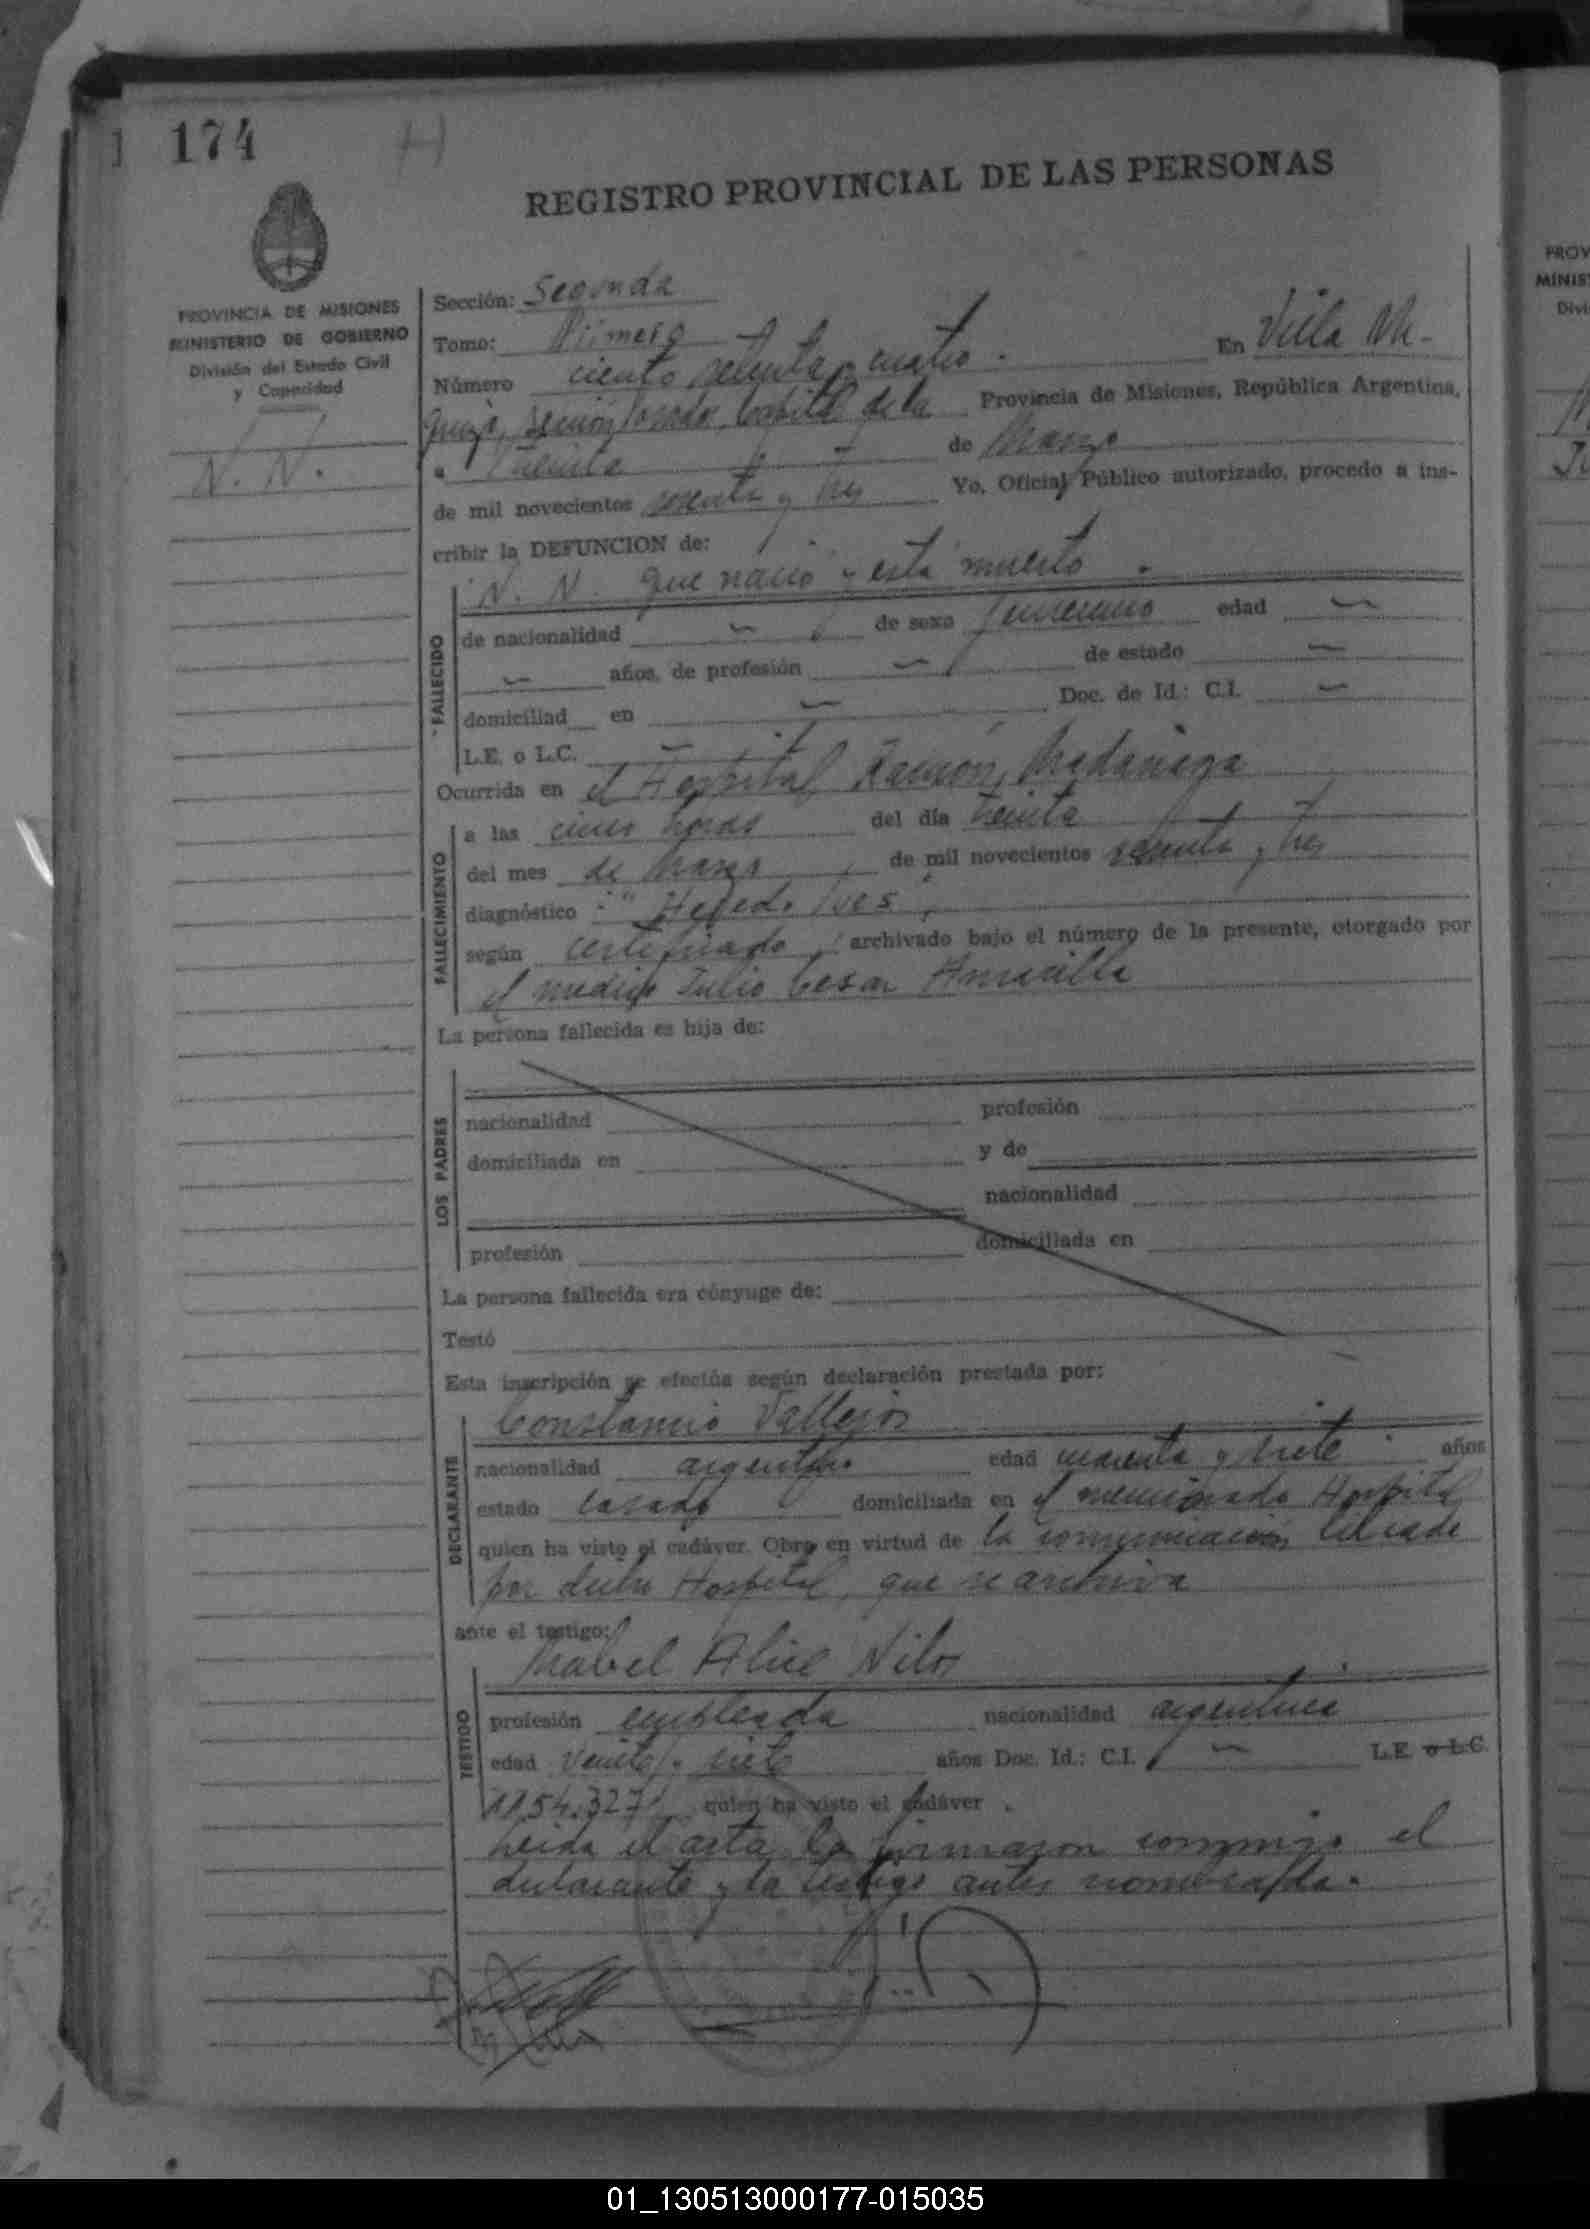 174
H
REGISTRO PROVINCIAL DE LAS PERSONAS
PROVINCIA DE MISIONES
MINISTERIO DE GOBIERNO
División del Estado Civil
y Capacidad
N. N.
Sección: Segunda
Tomo: Primero
En Villa Ur-
Número ciento setenta y cuatro.
quiza, Sección Posadas, Capital de la Provincia de Misiones, República Argentina,
a treinta de Marzo
de mil novecientos sesenta y tres Yo, Oficial Público autorizado, procedo a ins-
cribir la DEFUNCION de:
N. N. que nació y está muerto.
FALLECIDO
de nacionalidad de sexo femenino edad
años, de profesión de estado
domiciliad en Doc. de Id.: C.I.
L.E. o L.C.
Ocurrida en el Hospital Ramón Madariaga
FALLECIMIENTO
a las cinco horas del día treinta
del mes de Marzo de mil novecientos sesenta y tres
diagnóstico
según certificado, archivado bajo el número de la presente, otorgado por
el medico Julio Cesar Amarilla
La persona fallecida es hija de:
LOS PADRES
nacionalidad profesión
domiciliada en y de
nacionalidad
profesión domiciliada en
La persona fallecida era cónyuge de:
Testó
Esta inscripción se efectúa según declaración prestada por:
Constancio Vallejos
DECLARANTE
nacionalidad argentino edad cuarenta y siete años
estado casado domiciliada en el mencionado Hospital
quien ha visto el cadáver. Obra en virtud de la comunicación librada
por dicho Hospital, que se archiva
ante el testigo:
Mabel Alice
TESTIGO
profesión empleada nacionalidad argentina
edad veinte y siete años Doc. Id.: C.I. L.E. o L.C.
1154.327 quien ha visto el cadáver.
Leida el acta la firmaron conmigo el
declarante y la testigo antes nombrada.
PROV
MINIS
Divi
01_130513000177-015035